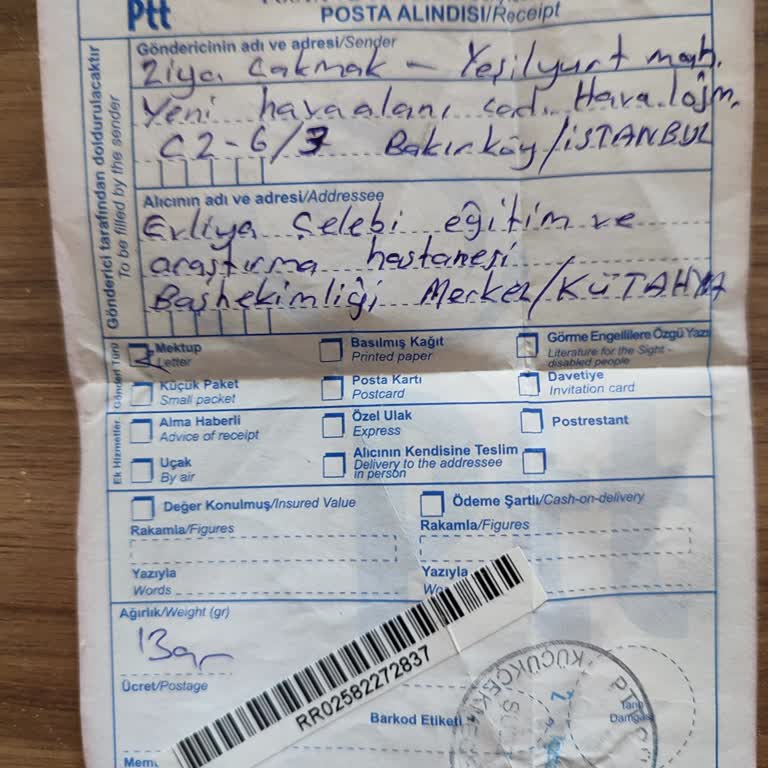 Ptt
POSTA ALINDISI/Receipt
Gönderici tarafından doldurulacaktır
To be filled by the sender
Göndericinin adı ve adresi/Sender
Ziya Çakmak - Yeşilyurt mah.
Yeni havaalanı cad. Hava.lojm.
C2-6/3 Bakırköy/İSTANBUL
Alıcının adı ve adresi/Addressee
Evliya Çelebi eğitim ve
araştırma hastanesi
Başhekimliği Merkez/KÜTAHYA
Gönderi Türü
Mektup
Letter
Basılmış Kağıt
Printed paper
Görme Engellilere Özgü Yazı
Literature for the Sight -
disabled people
Küçük Paket
Small packet
Posta Kartı
Postcard
Davetiye
Invitation card
Ek Hizmetler
Alma Haberli
Advice of receipt
Özel Ulak
Express
Postrestant
Uçak
By air
Alıcının Kendisine Teslim
Delivery to the addressee
in person
Değer Konulmuş/Insured Value
Ödeme Şartlı/Cash-on-delivery
Rakamla/Figures
Rakamla/Figures
Yazıyla
Words
Yazıyla
Wo
Ağırlık/Weight (gr)
13 gr
Ücret/Postage
RR02582272837
Barkod Etiketi
KÜÇÜKÇEKME
PTT
Tarih
Damgası
Memu